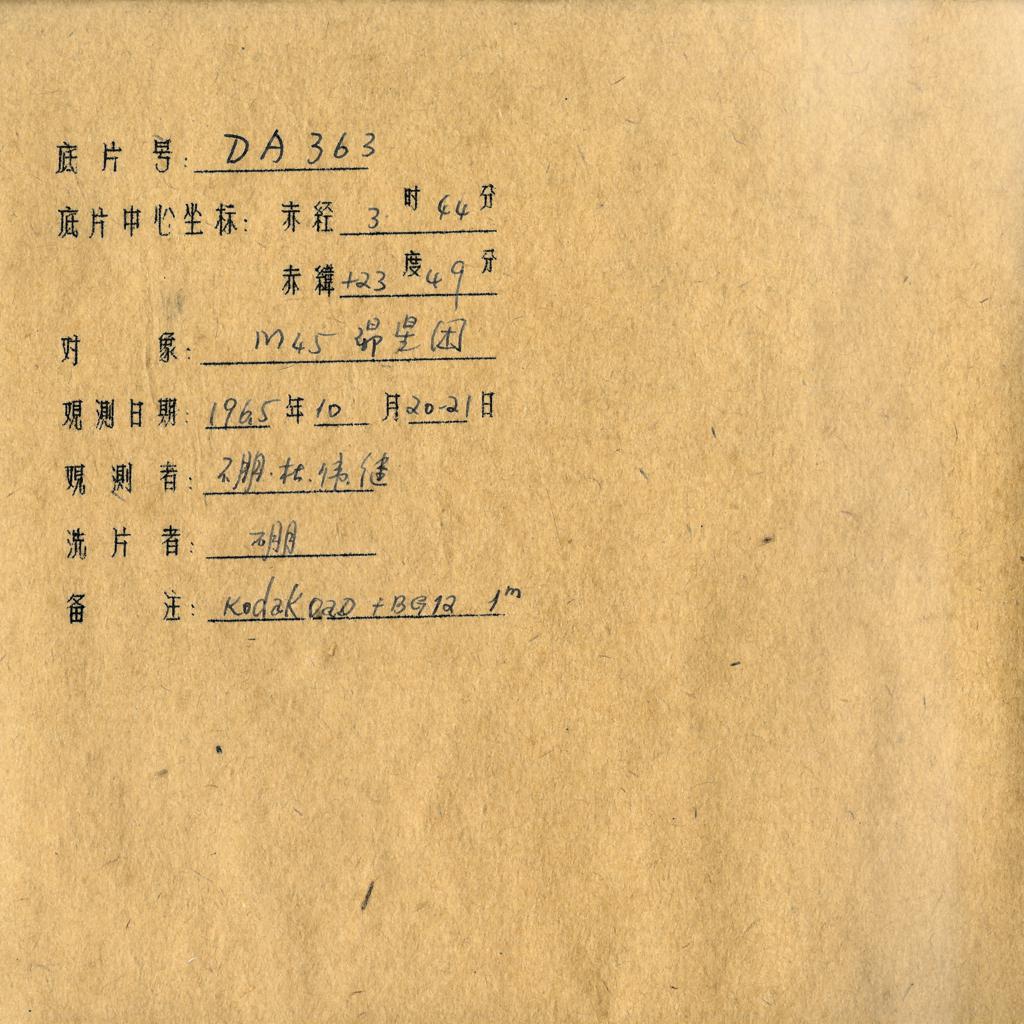 底片号: DA363
底片中心坐标: 赤经 3时44分
赤緯 +23度49分
对象: M45 昴星团
观測日期: 1965年10月20-21日
观測者: 石朋·杜·伟·健
洗片者: 石朋
备注: Kodak OaO +BG12 1ᵐ